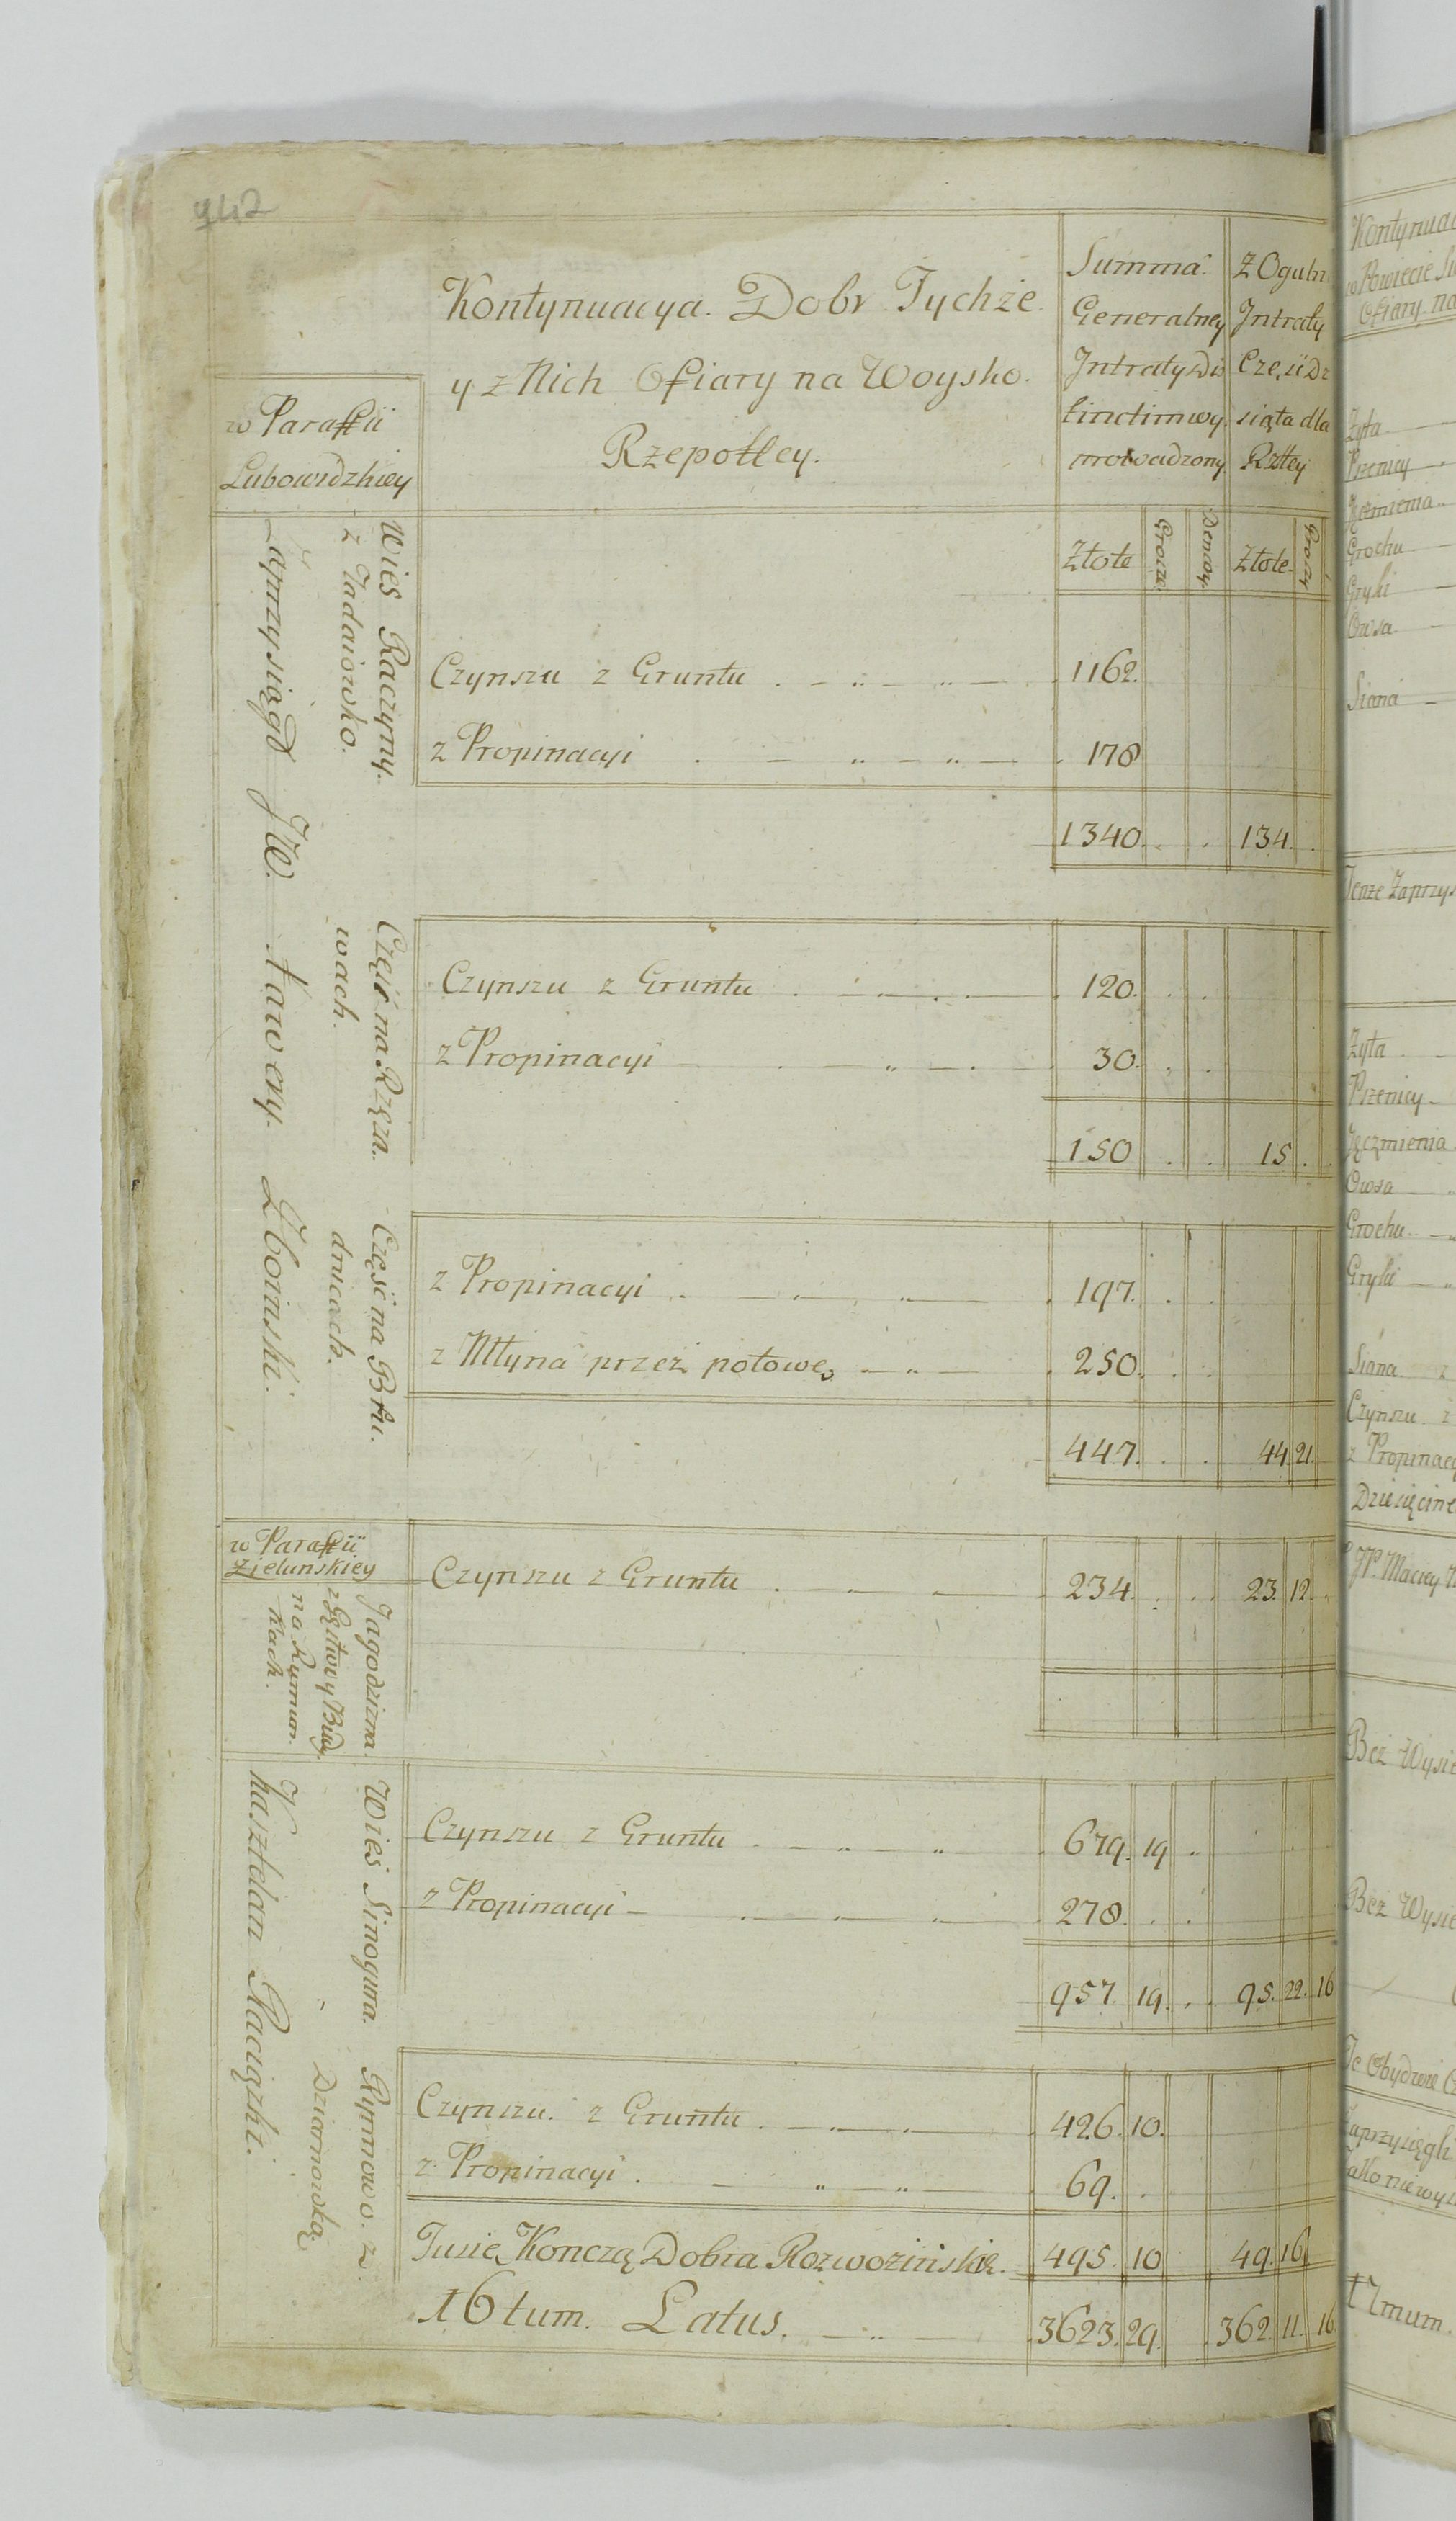 942
Kontynuacya. Dobr Tychże
y z Nich Ofiary na Woysko.
Rzepotley.
Summa
Generalney
Intraty Dis
tinctim wy
prowadzony
Z Oguln
Intraty
Częś Dz
siąta dla
Rzttey
w Paraffii
Lubowidzkiey
Złote
Grosze
Denary.
Złote
Groszy
Zaprzysiągł JW. Xawery Zboinski.
Wies Raczyny.
z Jadaiowko.
Czynszu z Gruntu 1162.
z Propinacyi 178
1340. 134.
Część na Rzęza..
wach.
Czynszu z Gruntu 120.
z Propinacyi 30.
150 15.
Część na Bru.
dnicach.
z Propinacyi 197.
z Młyna przez połowę 250.
447. 44. 21.
w Paraffii
Zielunskiey
Jagodzina.
na Rumun.
kach.
Czynszu z Gruntu 234. 23. 12.
Kasztelan Raciązki.
Wies Sinogura.
Czynszu z Gruntu 679. 19
z Propinacyi 278.
957. 19. 95. 22. 16
Rynowo. z.
Dzianowką
Czynszu. z Gruntu 426. 10.
z Propinacyi 69.
Tusie Konczą Dobra Rozwozinskie. 495. 10 49. 16
16tum. Latus. 3623. 29. 362. 11. 16.
Kontynuac
w Powiecie
Ofiary na
Zyta
Pszenicy
Jęczmienia
Grochu
Gryki
Owsa
Siana
Tenze Zaprzys
Zyta
Pszenicy
Jęczmienia
Owsa
Grochu
Gryki
Siana z
Czynszu z
z Propinacy
Dziesięcine
JP. Maciey
Bez Wysie
Bez Wysie
Te Obydwie
Zaprzysięgli
17mum.